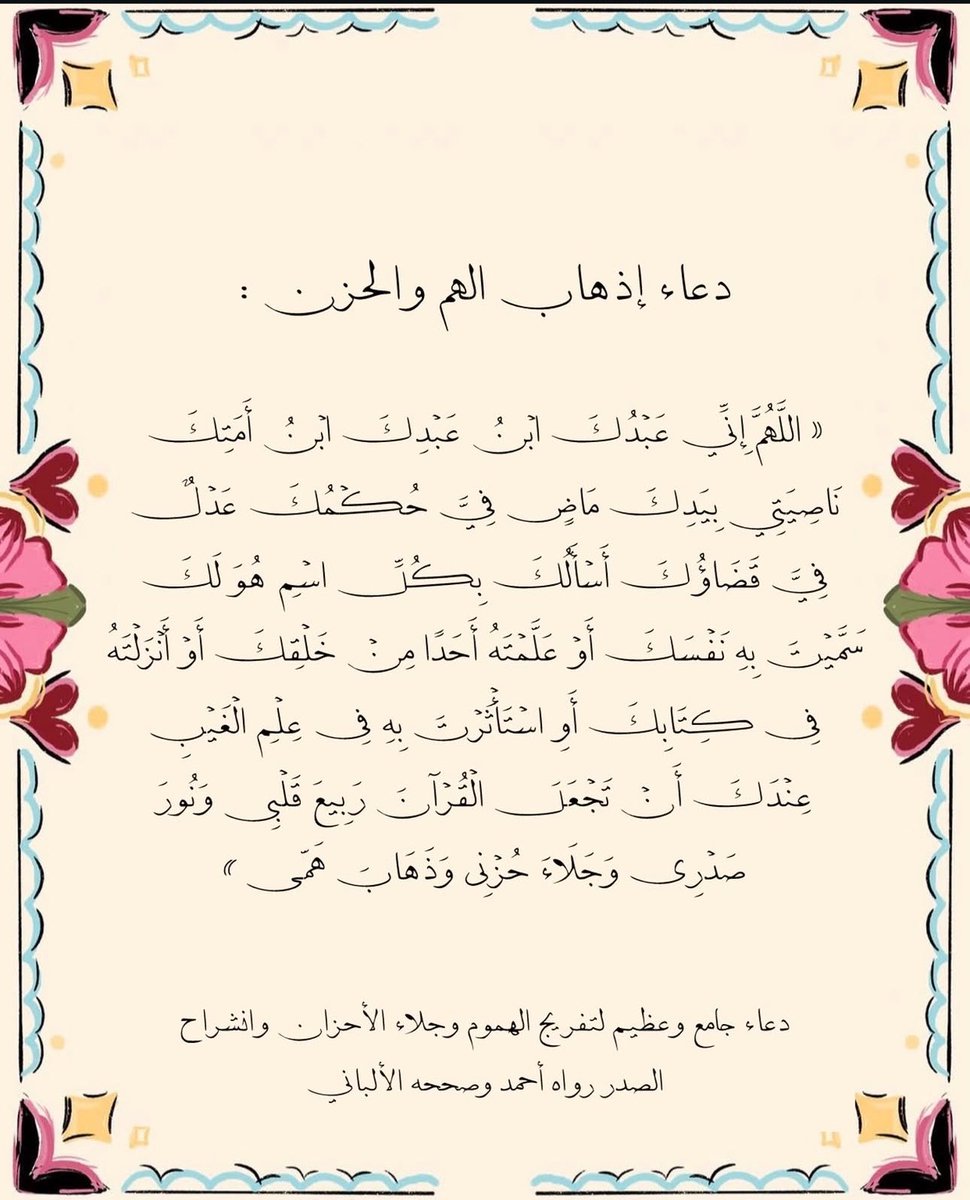 دعاء إذهاب الهم والحزن :
« اللَّهُمَّ إِنِّي عَبْدُكَ ابْنُ عَبْدِكَ ابْنُ أَمَتِكَ
نَاصِيَتِي بِيَدِكَ مَاضٍ فِيَّ حُكْمُكَ عَدْلٌ
فِيَّ قَضَاؤُكَ أَسْأَلُكَ بِكُلِّ اسْمٍ هُوَ لَكَ
سَمَّيْتَ بِهِ نَفْسَكَ أَوْ عَلَّمْتَهُ أَحَدًا مِنْ خَلْقِكَ أَوْ أَنْزَلْتَهُ
فِى كِتَابِكَ أَوِ اسْتَأْثَرْتَ بِهِ فِى عِلْمِ الْغَيْبِ
عِنْدَكَ أَنْ تَجْعَلَ الْقُرْآنَ رَبِيعَ قَلْبِى وَنُورَ
صَدْرِى وَجَلَاءَ حُزْنِى وَذَهَابَ هَمِّى »
دعاء جامع وعظيم لتفريج الهموم وجلاء الأحزان وانشراح
الصدر رواه أحمد وصححه الألباني